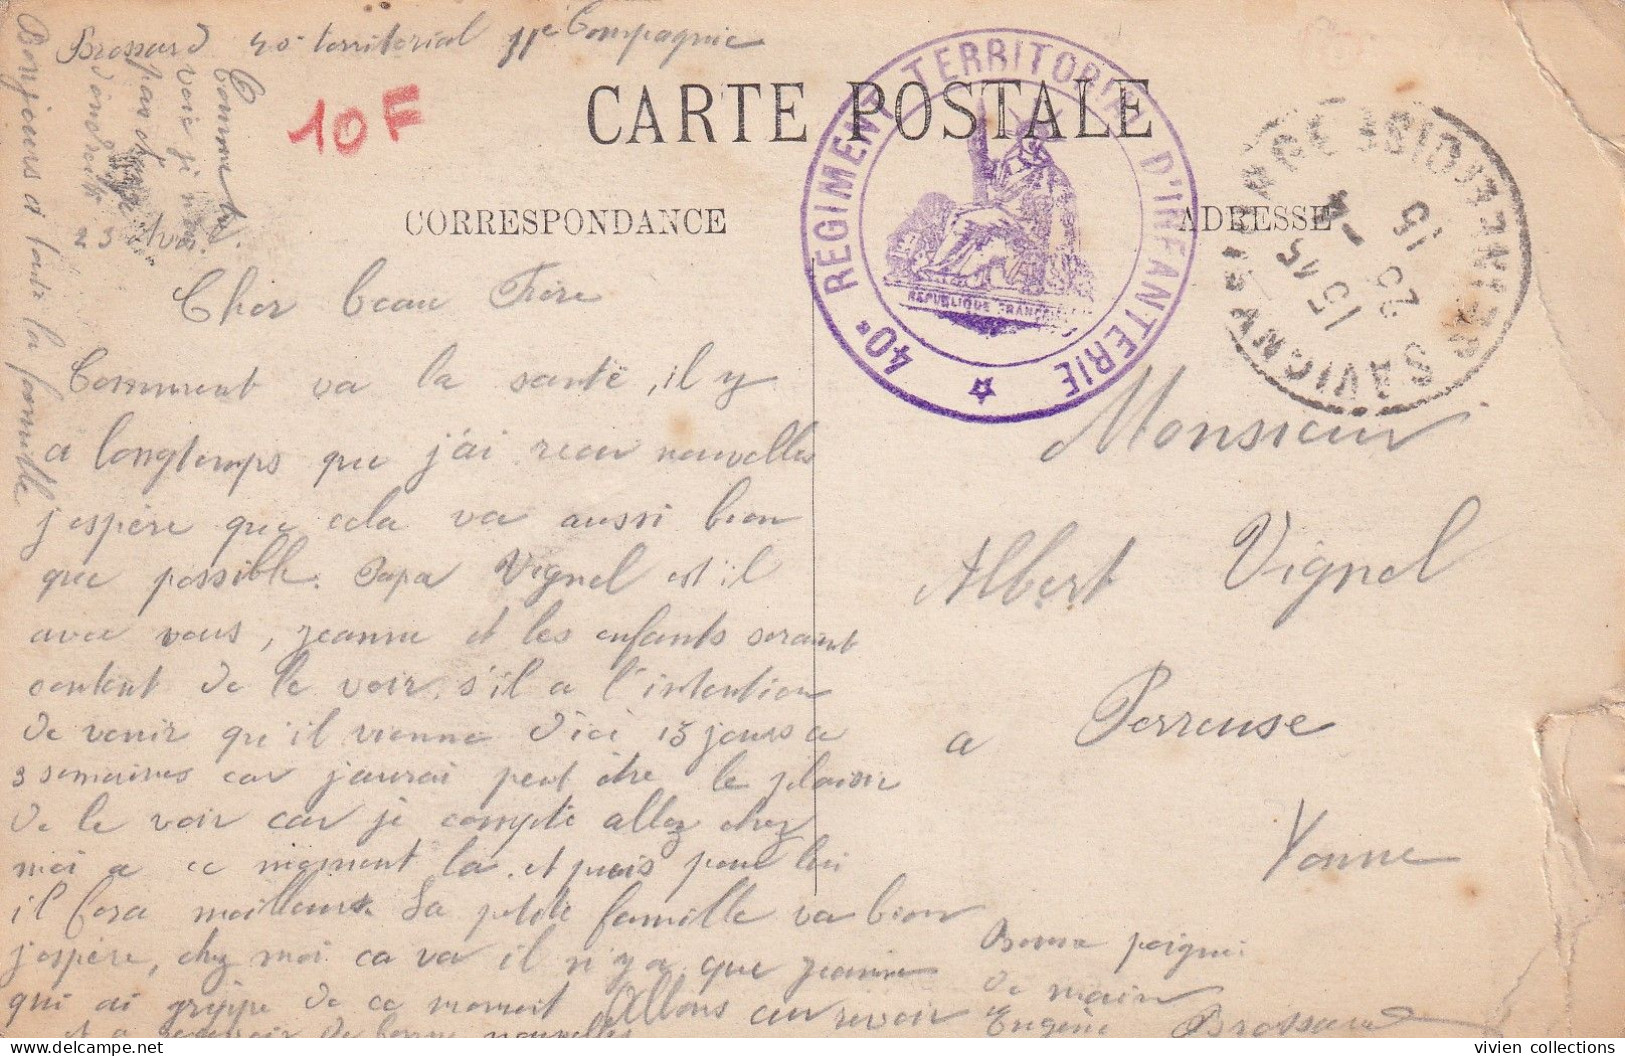 Brossard 40e territorial 11e Compagnie
Comme tu
voie je n'ai
pas
d'endroit
23 Avril
Bonjours a toute la famille
10F
CARTE POSTALE
CORRESPONDANCE
ADRESSE
40e RÉGIMENT TERRITORIAL D'INFANTERIE
REPUBLIQUE FRANÇAISE
SAVIGNY
15 45
25 - 4
15
Cher beau Frère
Comment va la santé, il y
a longtemps que j'ai recu nouvelles
j'espère que cela va aussi bien
que possible. Papa Vignol est il
avec vous, Jeanne et les enfants seraient
content de le voir, s'il a l'intention
de venir qu'il vienne d'ici 15 jours a
3 semaines car j'aurai peut être le plaisir
de le voir car je compte allez chez
moi a ce moment la. et puis pour lui
il fera meilleur. La petite famille va bien
j'espère, chez moi ca va il n'y a que Jeanne
qui ai grippe de ce moment Allons au revoir
et a recevoir de bonne nouvelles
Monsieur
Albert Vignol
a Perreuse
Yonne
Bonne poignée
de main
Eugène Brossard
vivien collections